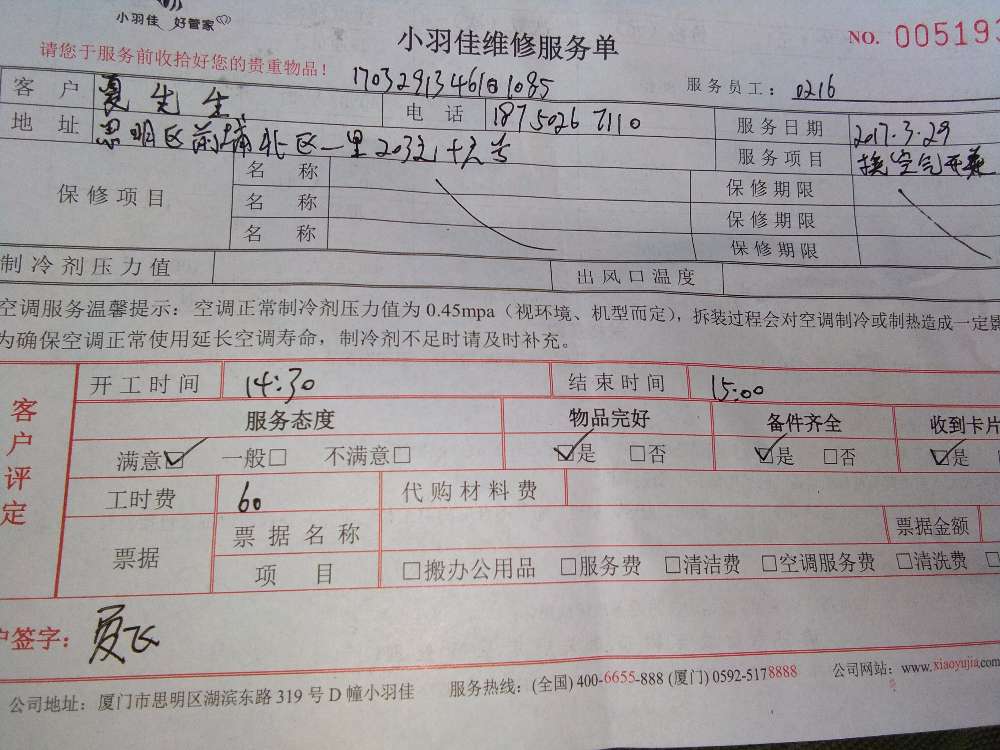 小羽佳 好管家
小羽佳维修服务单
NO. 005193
请您于服务前收拾好您的贵重物品！
服务员工：0216
客户 夏先生 电话 18750267110
地址 思明区前埔北区一里203
服务日期 2017.3.29
服务项目 换空气开关
保修项目 名称 保修期限
名称 保修期限
名称 保修期限
制冷剂压力值 出风口温度
空调服务温馨提示：空调正常制冷剂压力值为0.45mpa（视环境、机型而定），拆装过程会对空调制冷或制热造成一定影
为确保空调正常使用延长空调寿命，制冷剂不足时请及时补充。
客户评定
开工时间 14:30 结束时间 15:00
服务态度 物品完好 备件齐全 收到卡片
满意☑ 一般□ 不满意□ ☑是 □否 ☑是 □否 ☑是
工时费 60 代购材料费
票据 票据名称 票据金额
项目 □搬办公用品 □服务费 □清洁费 □空调服务费 □清洗费 □
户签字：夏飞
公司地址：厦门市思明区湖滨东路319号D幢小羽佳 服务热线：(全国) 400-6655-888 (厦门) 0592-5178888 公司网站：www.xiaoyujia.com